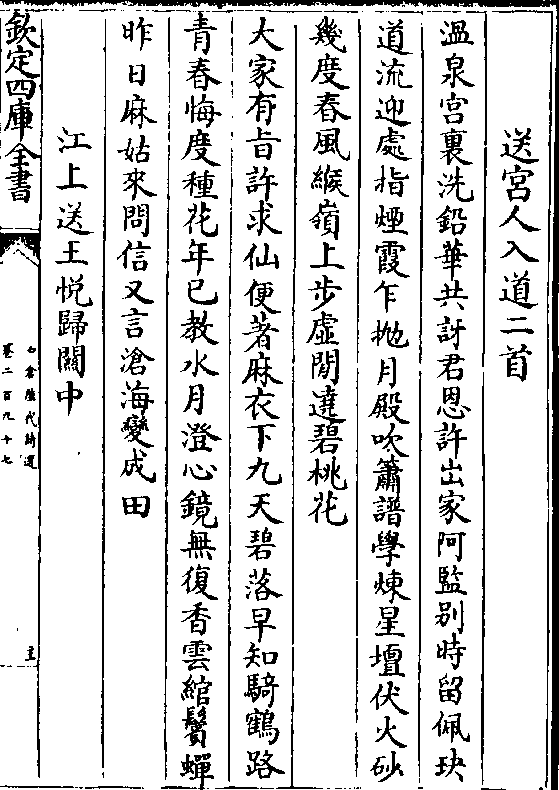 送宮人入道二首
溫泉宮裏洗鉛華共訝君恩許出家阿監别時留佩玦
道流迎處指煙霞乍抛月殿吹簫譜學煉星壇伏火砂
幾度春風緱嶺上步虛閒遶碧桃花
大家有㫖許求仙便著麻衣下九天碧落早知騎鶴路
青春悔度種花年已教水月澄心鏡無復香雲綰鬢蟬
昨日麻姑來問信又言滄海變成田
江上送王悦歸關中
欽定四庫全書
石倉歷代詩選
卷二百九十七